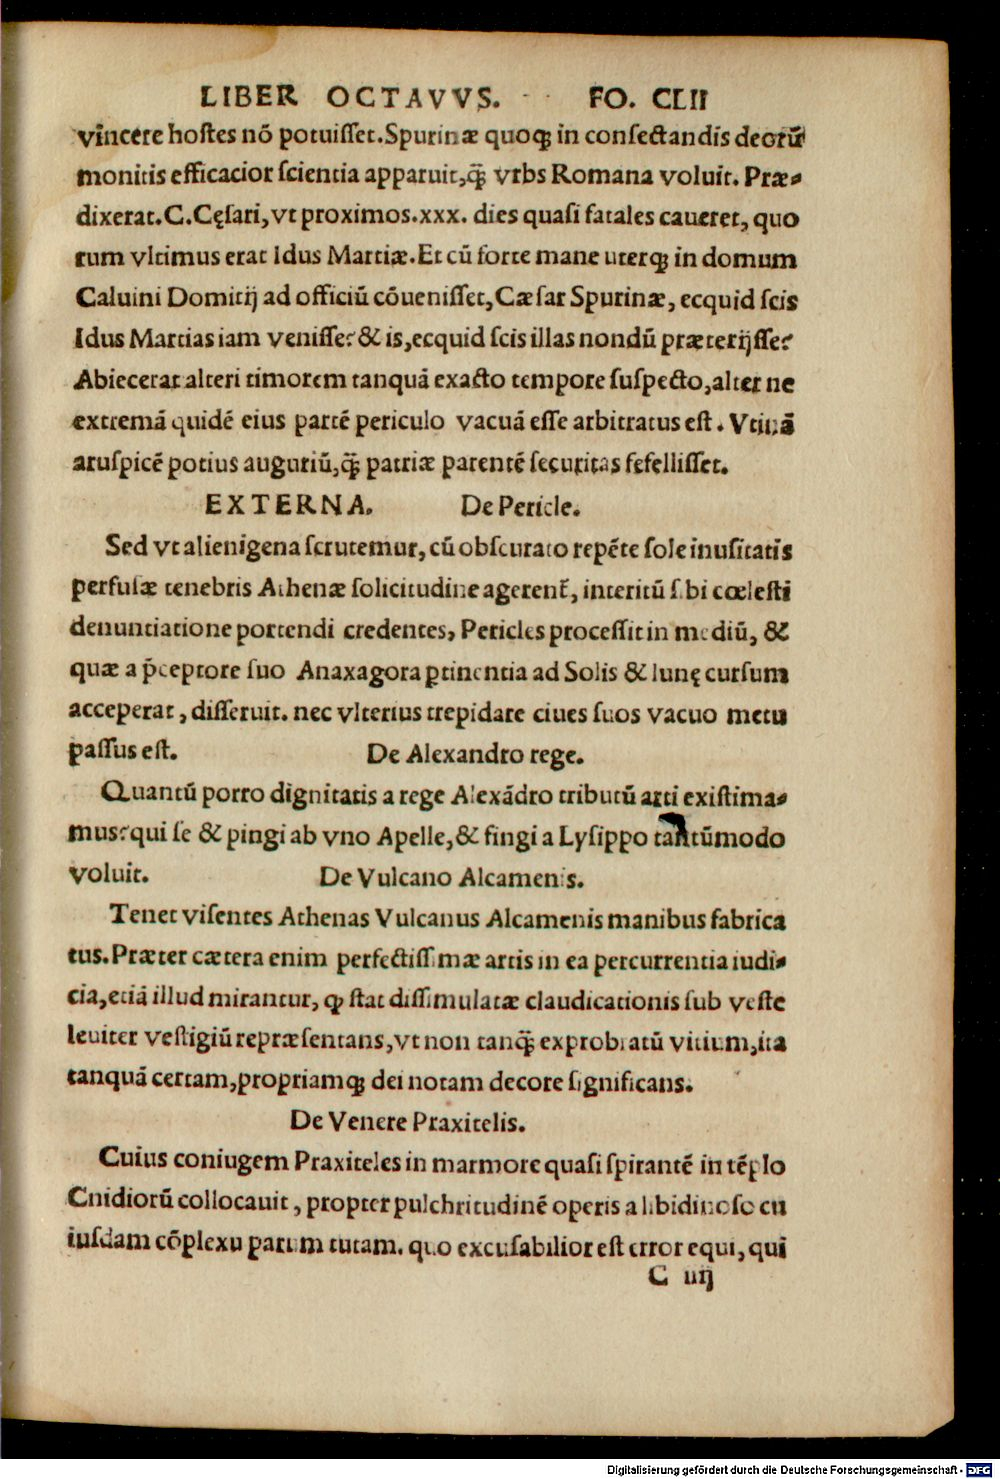 LIBER OCTAVVS. FO. CLII
vincere hostes nō potuisset. Spurinæ quoqꝫ in consectandis deorū
monitis efficacior scientia apparuit, q̃ꝫ vrbs Romana voluit. Præ-
dixerat. C. Cęsari, vt proximos. xxx. dies quasi fatales caueret, quo
rum vltimus erat Idus Martiæ. Et cū forte mane uterqꝫ in domum
Caluini Domitij ad officiū cōuenisset, Cæsar Spurinæ, ecquid scis
Idus Martias iam venisse? & is, ecquid scis illas nondū præterijsse?
Abiecerat alteri timorem tanquā exacto tempore suspecto, alter ne
extremā quidē eius partē periculo vacuā esse arbitratus est. Vtinā
aruspicē potius auguriū, q̃ꝫ patriæ parentē securitas fefellisset.
EXTERNA. De Pericle.
Sed vt alienigena scrutemur, cū obscurato repēte sole inusitatis
perfusæ tenebris Athenæ solicitudine agerent᷑, interitū sibi cœlesti
denuntiatione portendi credentes, Pericles processit in mediū, &
quæ a p̄ceptore suo Anaxagora ꝑtinentia ad Solis & lunę cursum
acceperat, disseruit. nec vlterius trepidare ciues suos vacuo metu
passus est. De Alexandro rege.
Quantū porro dignitatis a rege Alexādro tributū arti existima-
mus? qui se & pingi ab vno Apelle, & fingi a Lysippo tantūmodo
voluit. De Vulcano Alcamenis.
Tenet visentes Athenas Vulcanus Alcamenis manibus fabrica
tus. Præter cætera enim perfectissimæ artis in ea percurrentia iudi-
cia, etiā illud mirantur, ꝙ stat dissimulatæ claudicationis sub veste
leuiter vestigiū repræsentans, vt non tanq̃ꝫ exprobratū vitium, ita
tanquā certam, propriamqꝫ dei notam decore significans.
De Venere Praxitelis.
Cuius coniugem Praxiteles in marmore quasi spirantē in tēplo
Cnidiorū collocauit, propter pulchritudinē operis a libidinoso cu
iusdam cōplexu parum tutam. quo excusabilior est error equi, qui
C iiij
Digitalisierung gefördert durch die Deutsche Forschungsgemeinschaft - DFG